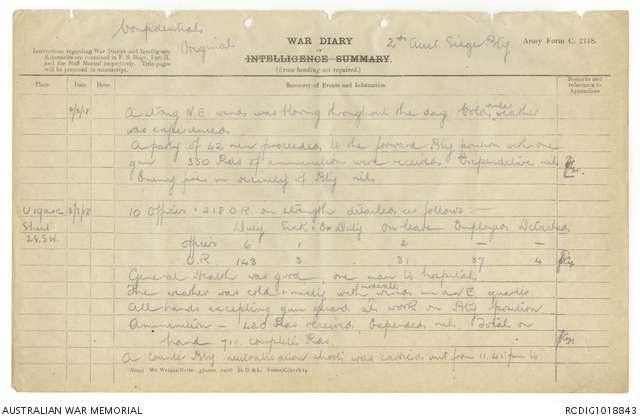 Confidential
Original
WAR DIARY
or
INTELLIGENCE SUMMARY.
(Erase heading not required.)
2nd Aust. Siege Bty
Army Form C. 2118.
Instructions regarding War Diaries and Intelligence
Summaries are contained in F. S. Regs., Part II.
and the Staff Manual respectively. Title pages
will be prepared in manuscript.
Place Date Hour Summary of Events and Information Remarks and
references to
Appendices
2/3/18 A strong N.E. wind was blowing throughout the day. Cold weather
was experienced.
A party of 42 men proceeded to the forward Bty position with one
gun 350 Rds of ammunition were received Expenditure nil
Enemy fire in vicinity of Bty nil.
3/3/18 10 Officers + 218 O.R. on strength detailed as follows:
Sheet
28.S.W.
Duty Sick + Ex Duty On leave Employed Detached
Officers 6 1 2 — —
O.R 143 3 31 37 4
General Health was good, one man to hospital.
The weather was cold + misty with winds in a N.E. quarter.
All hands excepting gun guard at work on Bty position
Ammunition — 420 Rds received, Expended nil, Total on
hand 711 complete Rds.
A Counter Bty neutralisation shoot was carried out from 11.45 pm to